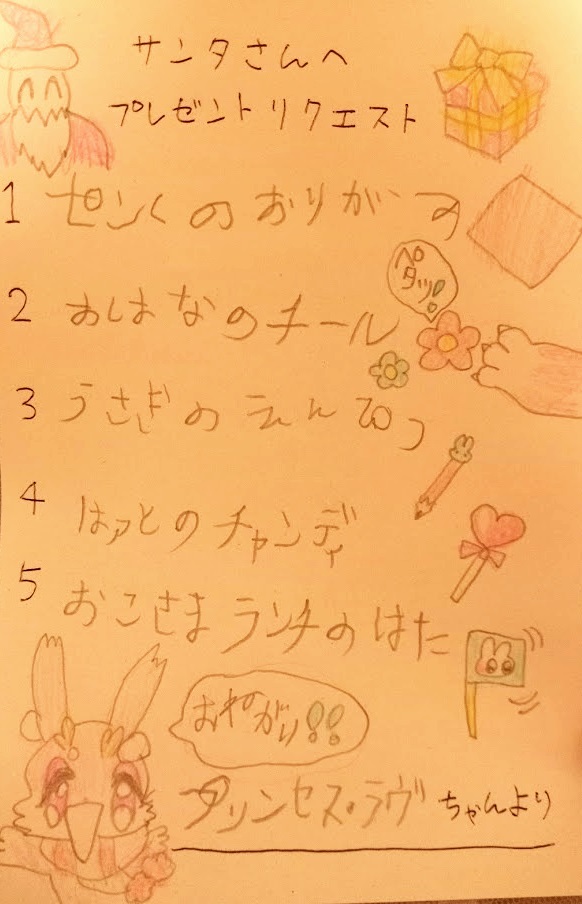 サンタさんへ
プレゼントリクエスト
1 ピンくのおりがみ
2 おはなのチール
ペタッ!
3 うさぎのえんぴつ
4 はァとのチャンディ
5 おこさまランチのはた
おねがい!!
プリンセス・ラヴちゃんより